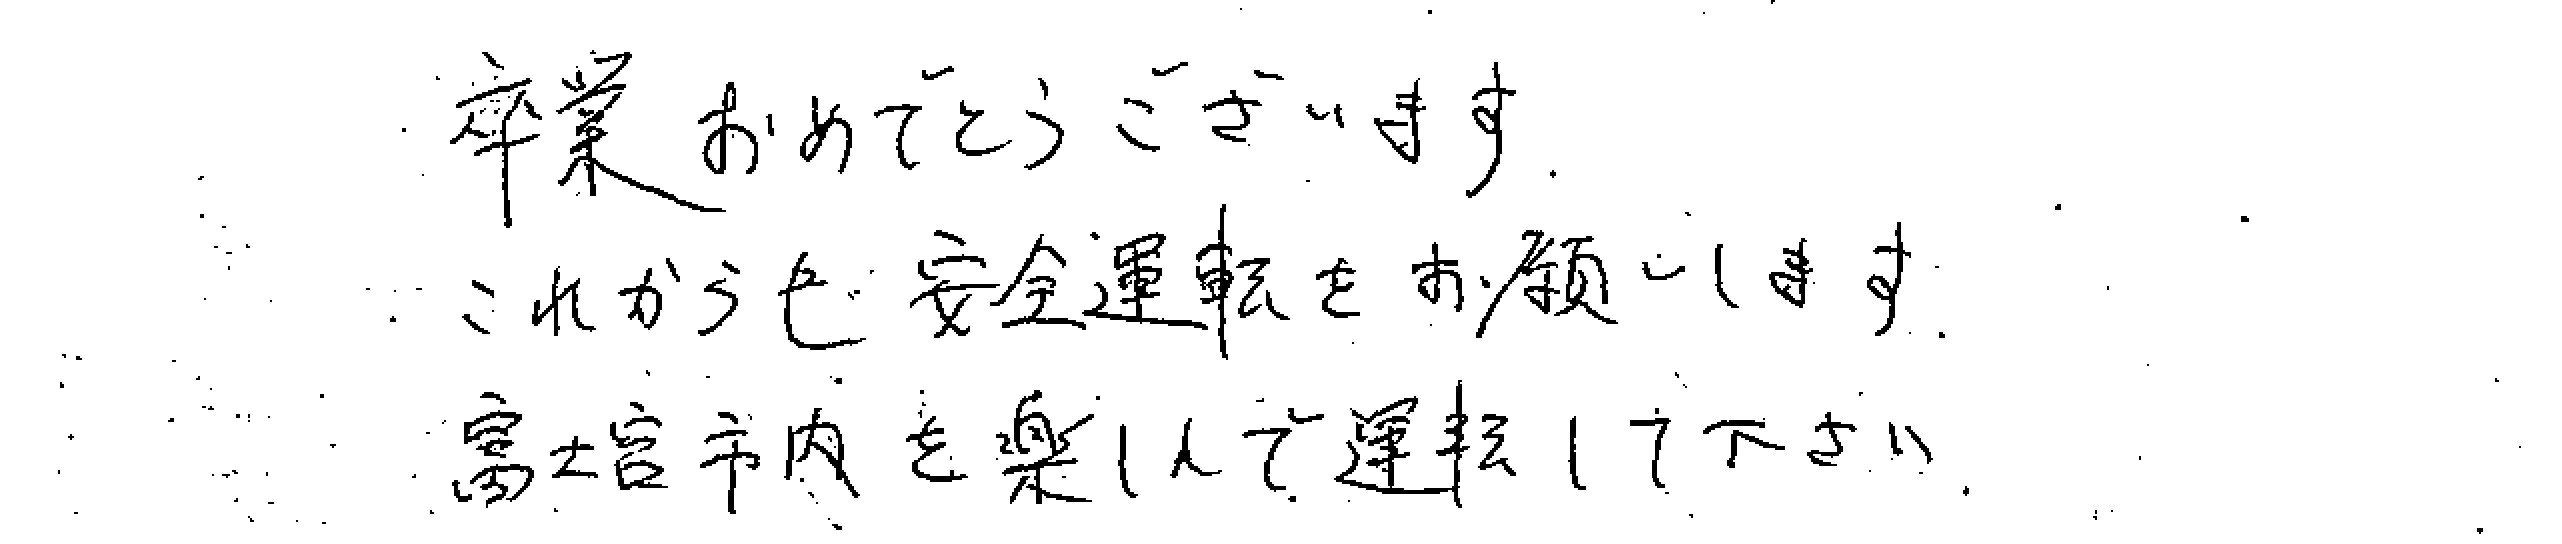 卒業おめでとうございます.
これからも安全運転をお願いします.
富士宮市内を楽しんで運転して下さい.